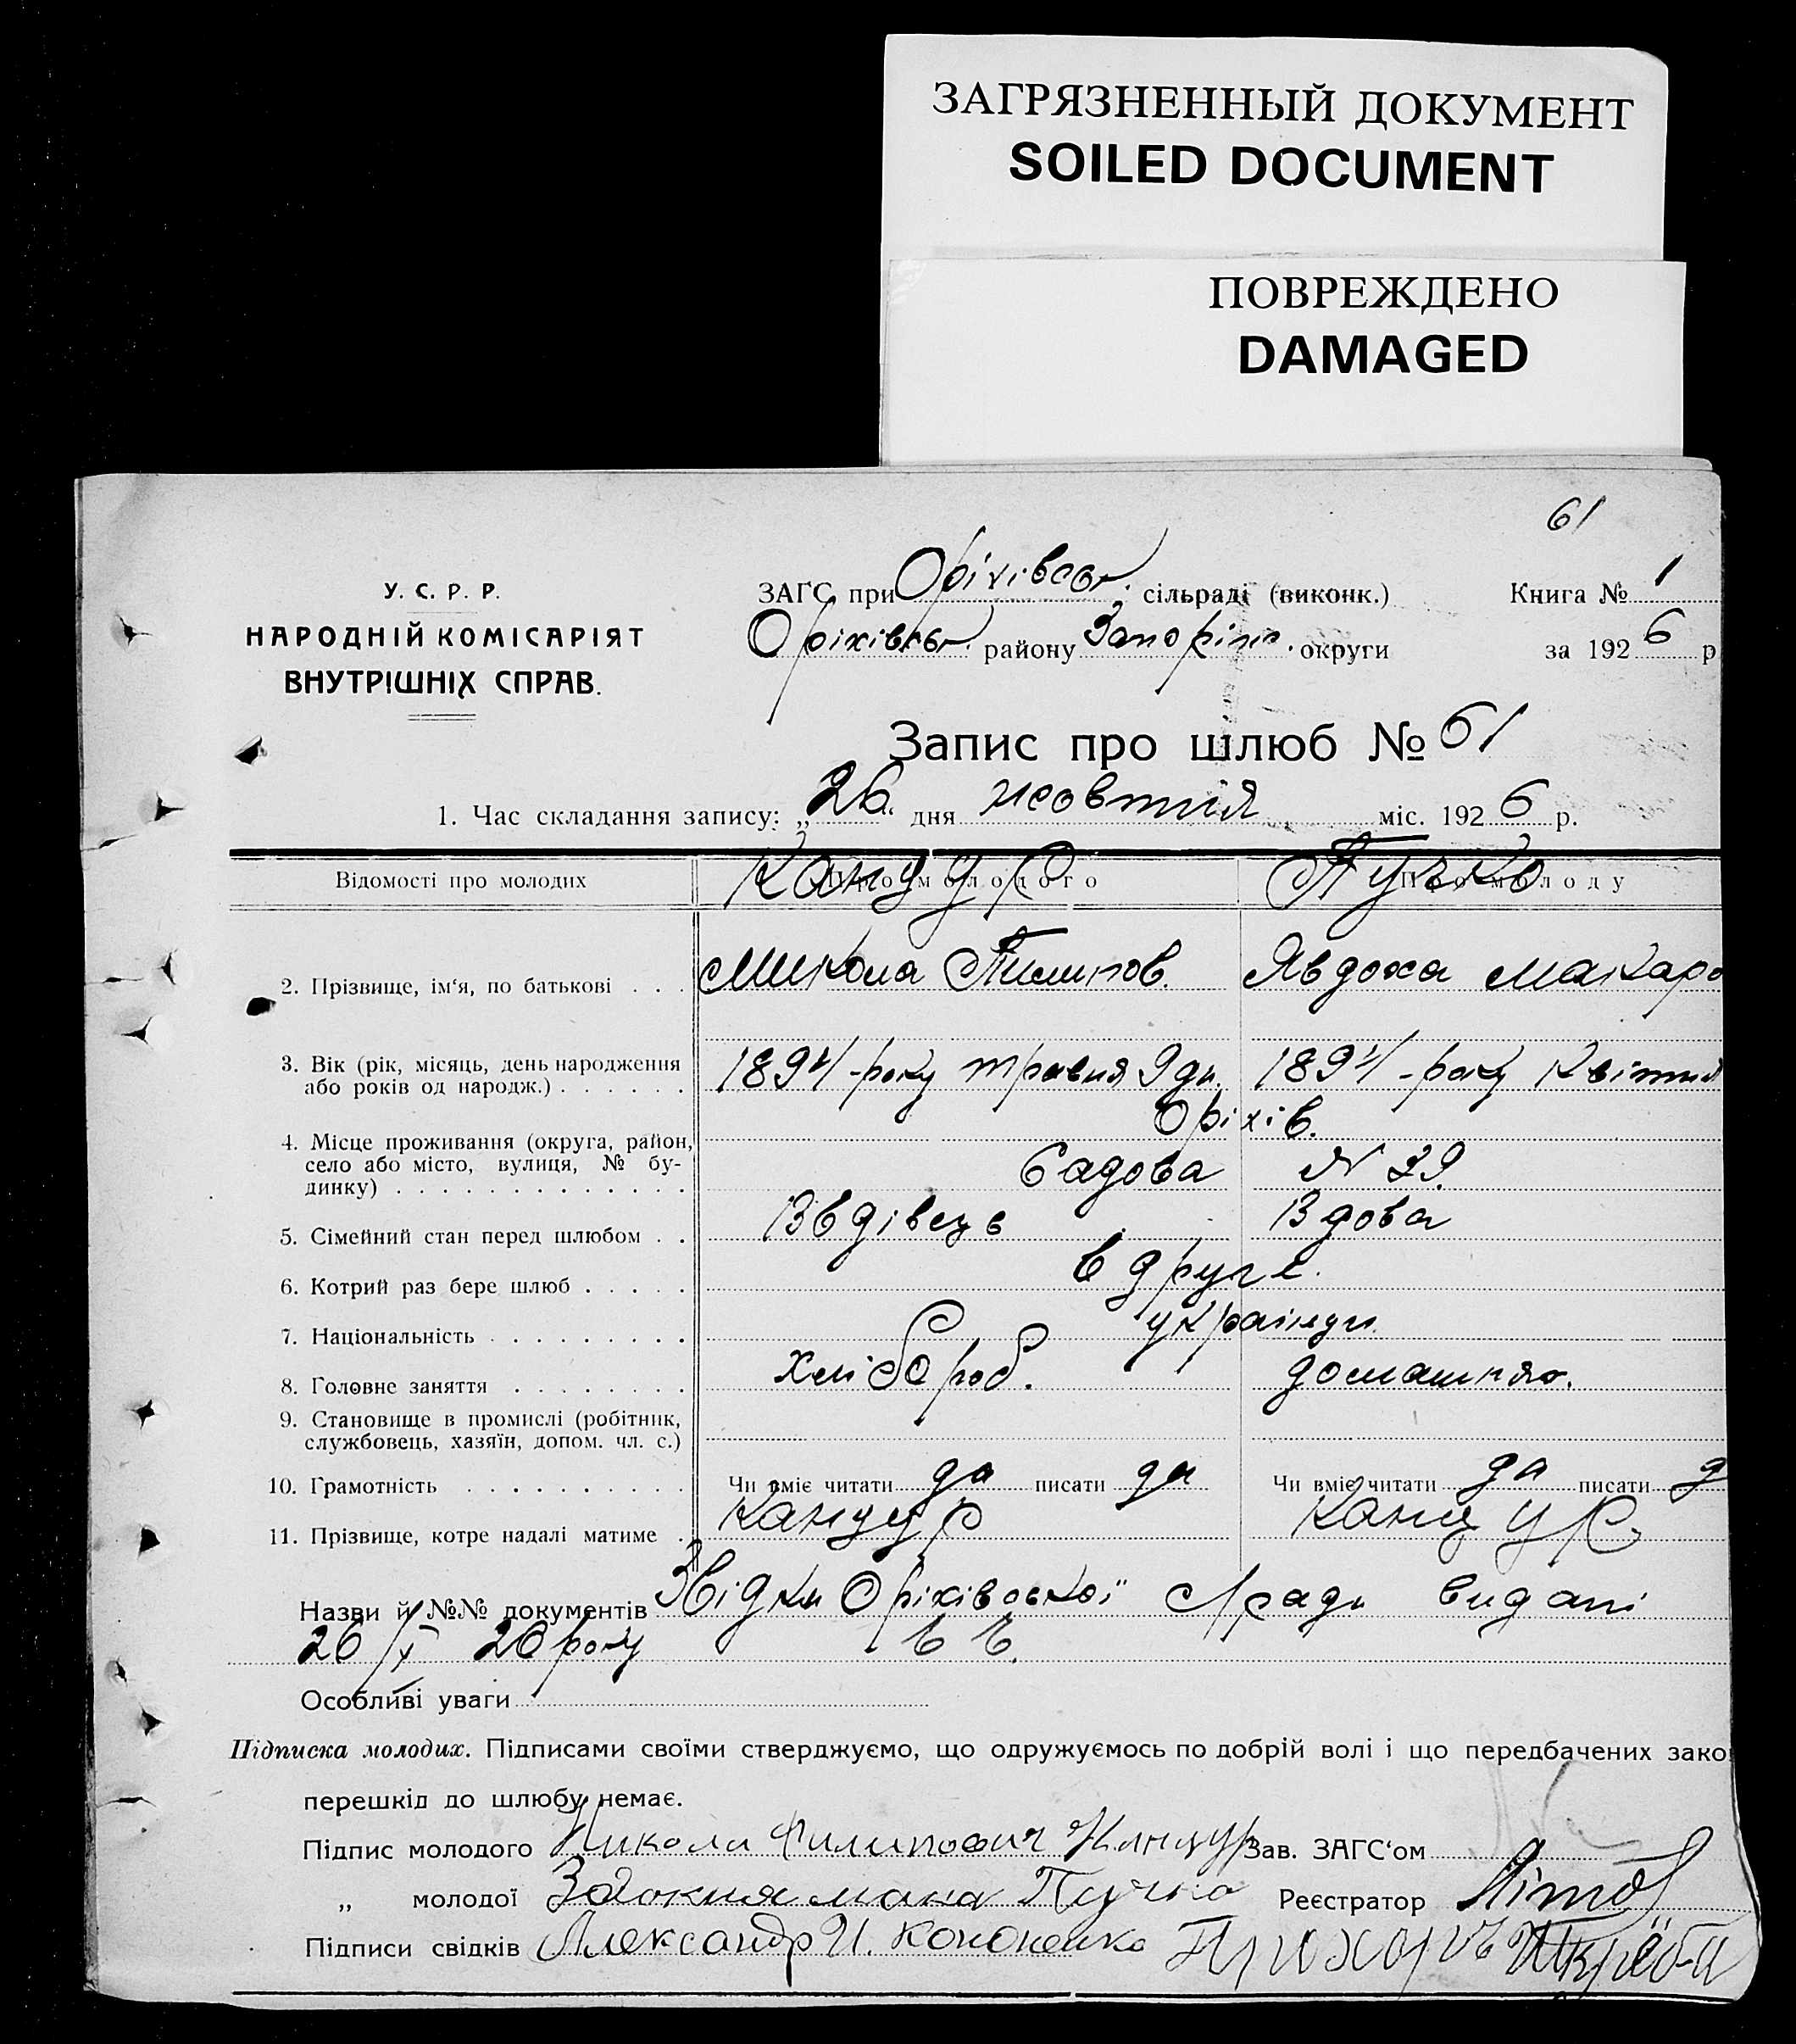 ЗАГРЯЗНЕННЫЙ ДОКУМЕНТ
SOILED DOCUMENT
ПОВРЕЖДЕНО
DAMAGED
61
У. С. Р. Р.
НАРОДНІЙ КОМІСАРІЯТ
ВНУТРІШНІХ СПРАВ.
ЗАГС при Оріхівськ. сільраді (виконк.)
Оріхівськ. району Запоріж. округи
Книга № 1
за 1926 р
Запис про шлюб № 61
1. Час складання запису: „26“ дня жовтня міс. 1926 р.
Відомості про молодих Про молодого Про молоду
Канцур Пучко
2. Прізвище, ім'я, по батькові . . . Микола Пилипов. Явдоха Макаро
3. Вік (рік, місяць, день народження
або років од народж.) . . . . . . 1894 року травня 9 дн. 1894 року Квітня
Оріхів.
4. Місце проживання (округа, район,
село або місто, вулиця, № бу-
динку) . . . . . . . . . . . . . Садова № 29.
5. Сімейний стан перед шлюбом . . Вдівець Вдова
6. Котрий раз бере шлюб . . . . . в друге.
7. Національність . . . . . . . . . українци.
8. Головне заняття . . . . . . . . хлібороб. домашняо.
9. Становище в промислі (робітник,
службовець, хазяїн, допом. чл. с.)
10. Грамотність . . . . . . . . . . Чи вміє читати да писати да Чи вміє читати да писати д
11. Прізвище, котре надалі матиме . Канцур Канцур
Назви й №№ документів Звідки Оріхівської С/ради видані
26/X 26 року
Особливі уваги
Підписка молодих. Підписами своїми стверджуємо, що одружуємось по добрій волі і що передбачених зако
перешкід до шлюбу немає.
Підпис молодого Никола Филипович Канцур Зав. ЗАГС'ом
„ молодої Пучко Реєстратор
Підписи свідків Александр И. Кононенко Прохоръ